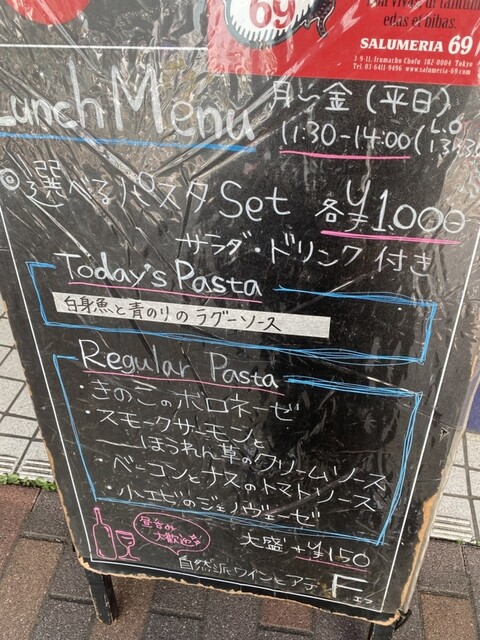 69
edas et bibas.
SALUMERIA 69
Tel. 03-6411-9496 www.salumeria-69.com
Lunch Menu
月〜金 (平日)
11:30-14:00 (L.O
◎選べるパスタSet 各¥1,000
サラダ・ドリンク付き
Today's Pasta
白身魚と青のりのラグーソース
Regular Pasta
・きのこのボロネーゼ
・スモークサーモンと
ほうれん草のクリームソース
・ベーコンとナスのトマトソース
・小エビのジェノヴェーゼ
昼呑み
大歓迎
大盛 +¥150
自然派ワインとアテ F
エフ